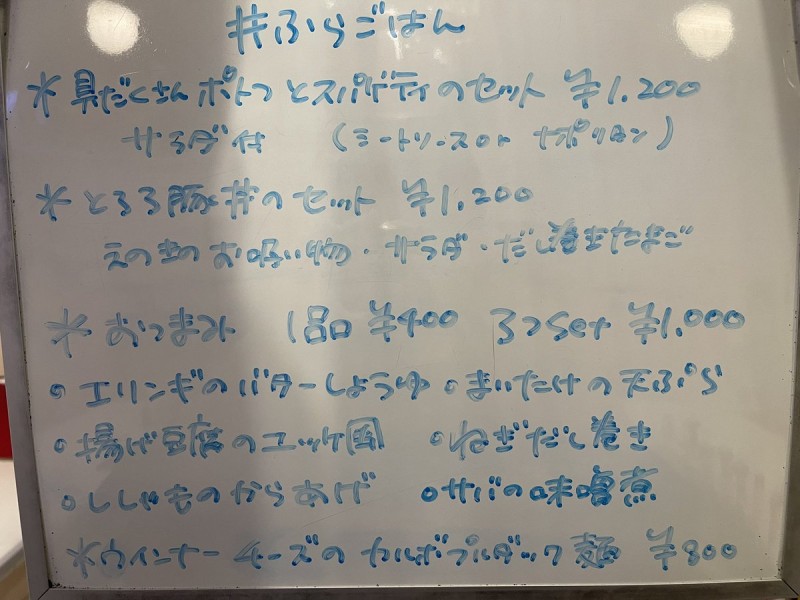 #ふらごはん
*具だくさんポトフとスパゲティのセット ¥1,200
サラダ付 (ミートソース or ナポリタン)
*とろろ豚丼のセット ¥1,200
えのきのお吸い物・サラダ・だし巻きたまご
*おつまみ 1品 ¥400 3つset ¥1,000
•エリンギのバターしょうゆ •まいたけの天ぷら
•揚げ豆腐のユッケ風 •ねぎだし巻き
•ししゃものからあげ •サバの味噌煮
*ウインナーチーズのカルボプルダック麺 ¥800